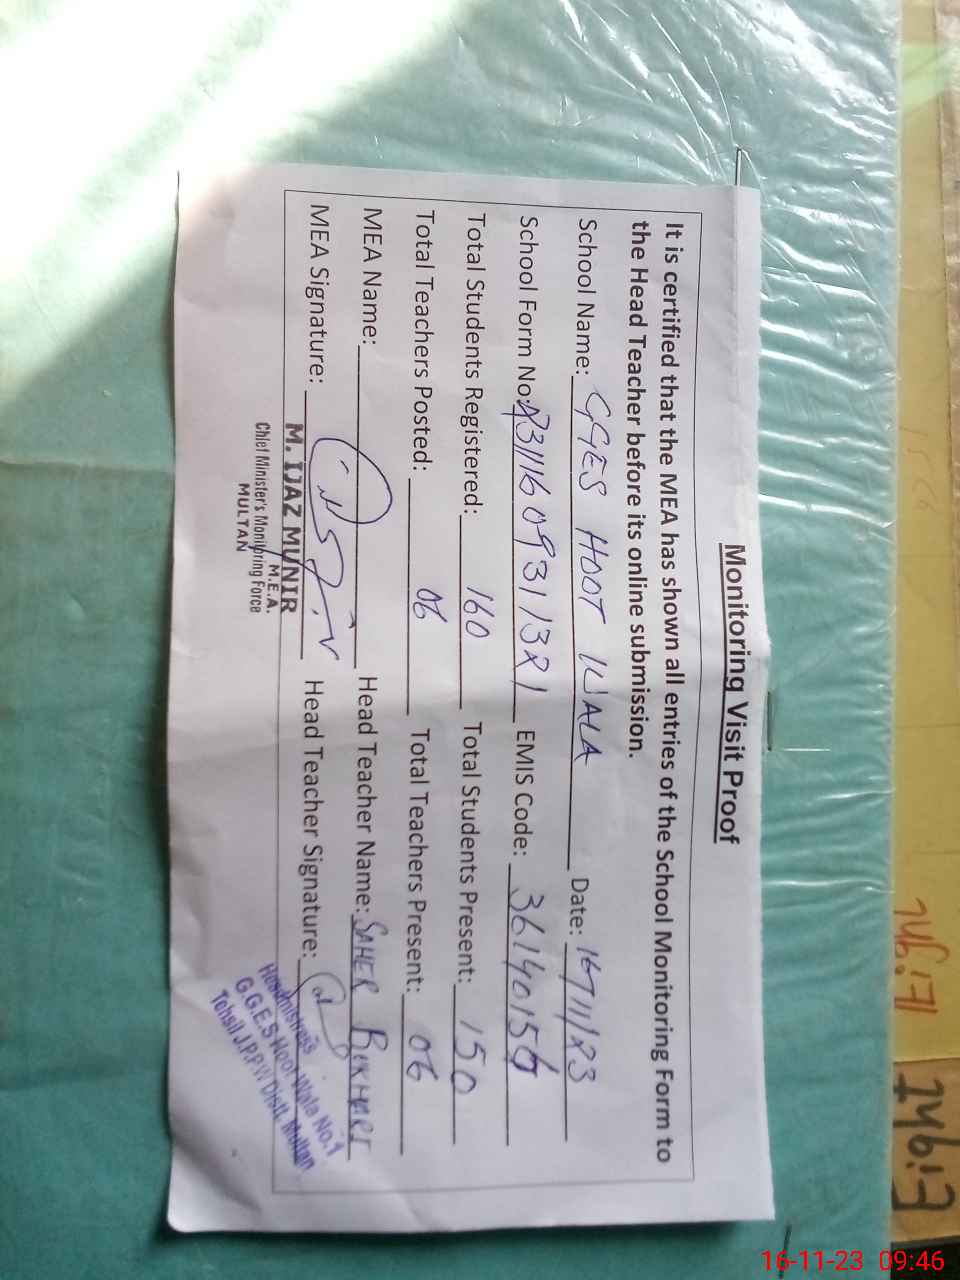 Monitoring Visit Proof
It is certified that the MEA has shown all entries of the School Monitoring Form to
the Head Teacher before its online submission.
School Name: GGES HOOT WALA Date: 16/11/23
School Form No: EMIS Code: 36140156
Total Students Registered: 160 Total Students Present: 150
Total Teachers Posted: 06 Total Teachers Present: 06
MEA Name: Head Teacher Name: SAHER BUKHARI
MEA Signature: Head Teacher Signature:
M. IJAZ MUNIR
M.E.A.
Chief Minister's Monitoring Force
MULTAN
Headmistress
G.G.E.S Hoot Wala No.1
Tehsil J.P.P.W Distt. Multan
16-11-23 09:46